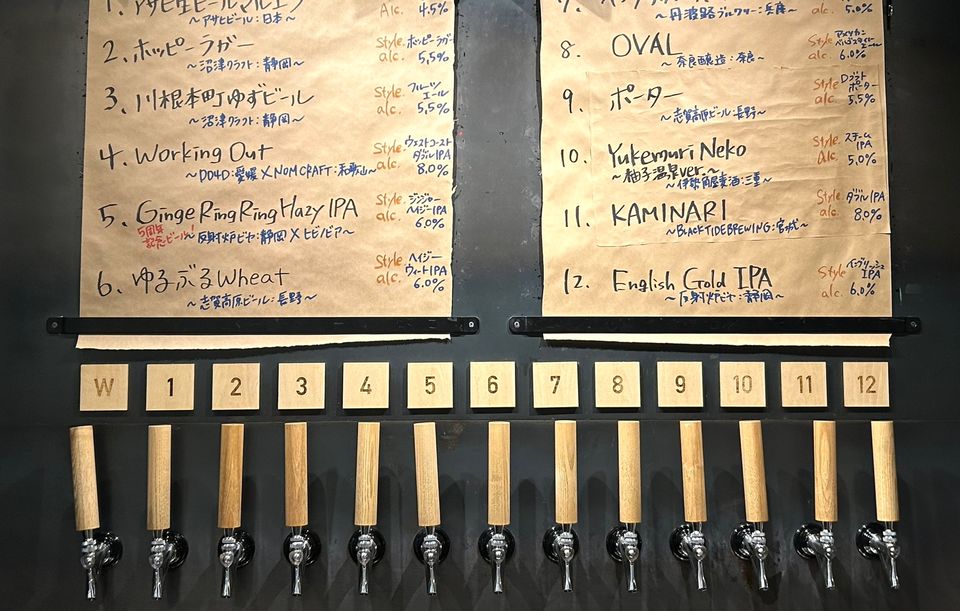 1. アサヒ生ビールマルエフ
Alc. 4.5%
～アサヒビール:日本～
2. ホッピーラガー
Style. ホッピーラガー
alc. 5.5%
～沼津クラフト:静岡～
3. 川根本町ゆずビール
Style フルーツ
エール
alc. 5.5%
～沼津クラフト:静岡～
4. Working Out
Style. ウェストコースト
ダブルIPA
alc. 8.0%
～DD4D:愛媛×NOM CRAFT:和歌山～
5. Ginge Ring Ring Hazy IPA
Style. ジンジャー
ヘイジーIPA
alc. 6.0%
5周年
記念ビール!
～反射炉ビヤ:静岡×ビビビア～
6. ゆるぶるWheat
Style. ヘイジー
ウィートIPA
alc. 6.0%
～志賀高原ビール:長野～
7.
alc. 5.0%
～丹波路ブルワリー:兵庫～
8. OVAL
Style アメリカン
alc. 6.0%
～奈良醸造:奈良～
9. ポーター
Style ロブスト
ポーター
alc. 5.5%
～志賀高原ビール:長野～
10. Yukemuri Neko
～柚子温泉ver.～
Style. スチーム
IPA
alc. 5.0%
～伊勢角屋麦酒:三重～
11. KAMINARI
Style. ダブルIPA
alc. 8.0%
～BLACK TIDE BREWING:宮城～
12. English Gold IPA
Style イングリッシュ
IPA
alc. 6.0%
～反射炉ビヤ:静岡～
W 1 2 3 4 5 6 7 8 9 10 11 12